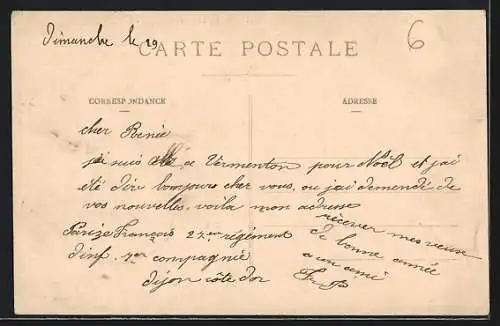 Dimanche le 29
6
CARTE POSTALE
CORRESPONDANCE
ADRESSE
cher Renée
je suis allé a Vermenton pour Noël et j'ai
été dire bonjours chez vous, ou j'ai demendé de
vos nouvelles, voila mon adresse
Parize François 27ème régiment
d'inf. 4er compagnie
dijon côte dor
recever mes veux
de bonne année
a un ami
F. P